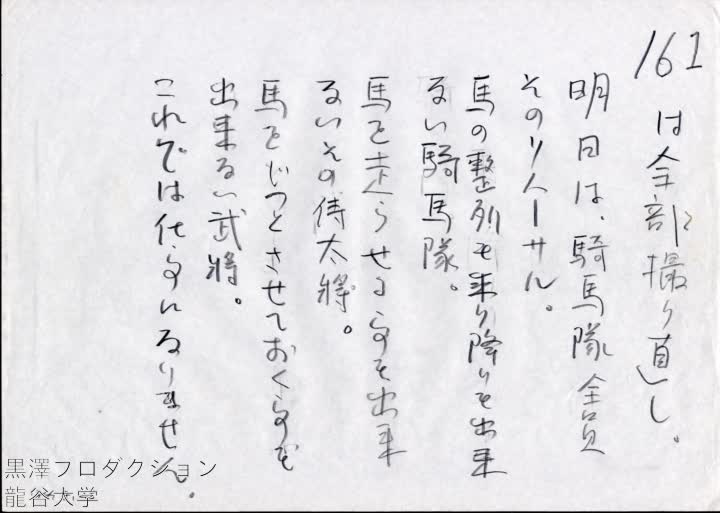 161は全部撮り直し。
明日は、騎馬隊全員
そのリハーサル。
馬の整列も乗り降りも出来
ない騎馬隊。
馬を走らせる事も出来
ないその侍大將。
馬をじっとさせておく事も
出来ない武將。
これでは仕事になりません。
黒澤プロダクション
龍谷大学